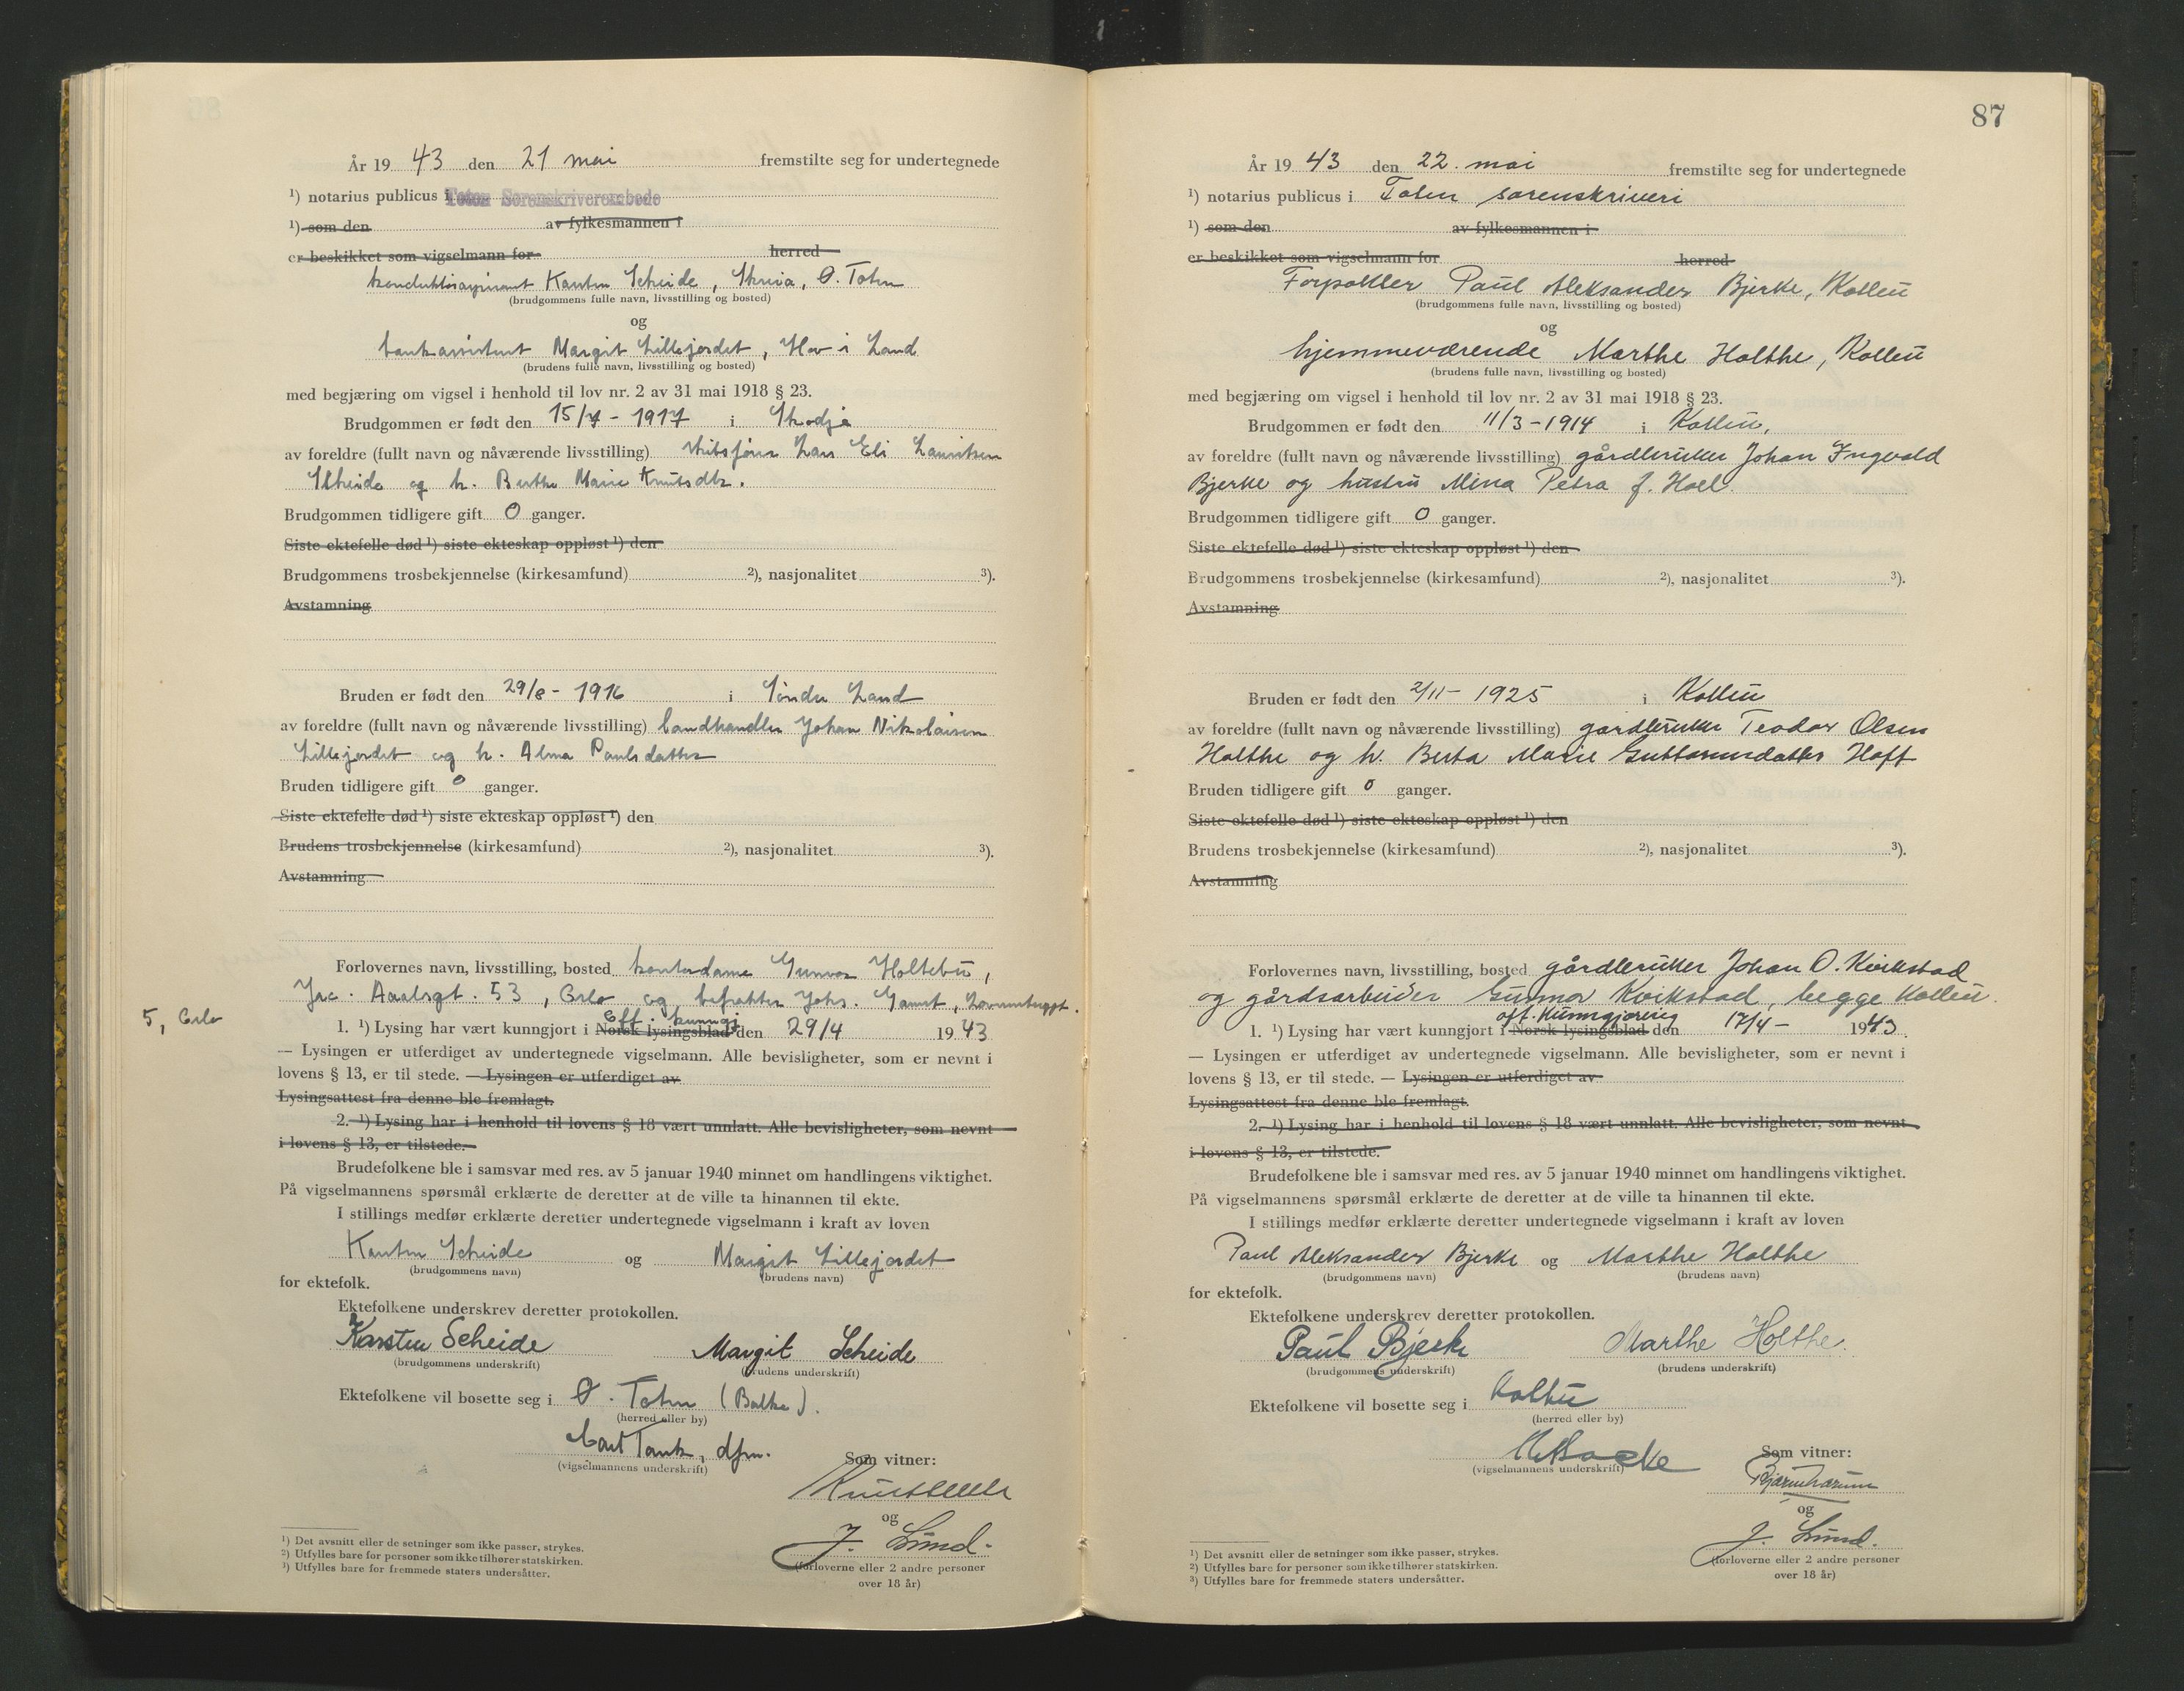 År 19 43 den 21 mai fremstilte seg for undertegnede
¹) notarius publicus i Toten Sorenskriverembede
¹) som den av fylkesmannen i
er beskikket som vigselmann for herred
Karsten Scheide, Skreia, Ø. Toten
(brudgommens fulle navn, livsstilling og bosted)
og
bankassistent Margit Lillejordet, Hov i Land
(brudens fulle navn, livsstilling og bosted)
med begjæring om vigsel i henhold til lov nr. 2 av 31 mai 1918 § 23.
Brudgommen er født den 15/7 - 1917 i Skodje
av foreldre (fullt navn og nåværende livsstilling) Lars Eli Lauritsen
Scheide og h. Berthe Marie Knutsdtr.
Brudgommen tidligere gift 0 ganger.
Siste ektefelle død ¹) siste ekteskap oppløst ¹) den
Brudgommens trosbekjennelse (kirkesamfund) ²), nasjonalitet ³).
Avstamning
Bruden er født den 29/8 - 1916 i Søndre Land
av foreldre (fullt navn og nåværende livsstilling) landhandler Johan Nikolaisen
Lillejordet og h. Alma Paulsdatter
Bruden tidligere gift 0 ganger.
Siste ektefelle død ¹) siste ekteskap oppløst ¹) den
Brudens trosbekjennelse (kirkesamfund) ²), nasjonalitet ³).
Avstamning
Forlovernes navn, livsstilling, bosted kontordame Gunvor Holtebu,
Jac. Aaalsgt. 53, Oslo og befrakter Johs.
5, Oslo
1. ¹) Lysing har vært kunngjort i Norsk lysingsblad Off. kunngj. den 29/4 1943
— Lysingen er utferdiget av undertegnede vigselmann. Alle bevisligheter, som er nevnt i
lovens § 13, er til stede. — Lysingen er utferdiget av
Lysingsattest fra denne ble fremlagt.
2. ¹) Lysing har i henhold til lovens § 18 vært unnlatt. Alle bevisligheter, som nevnt
i lovens § 13, er tilstede.
Brudefolkene ble i samsvar med res. av 5 januar 1940 minnet om handlingens viktighet.
På vigselmannens spørsmål erklærte de deretter at de ville ta hinannen til ekte.
I stillings medfør erklærte deretter undertegnede vigselmann i kraft av loven
Karsten Scheide og Margit Lillejordet
(brudgommens navn) (brudens navn)
for ektefolk.
Ektefolkene underskrev deretter protokollen.
Karsten Scheide Margit Scheide
(brudgommens underskrift) (brudens underskrift)
Ektefolkene vil bosette seg i Ø. Toten (Balke).
(herred eller by)
Carl Tank, dfm.
(vigselmannens underskrift)
Som vitner:
og
J. Lund.
(forloverne eller 2 andre personer
over 18 år)
¹) Det avsnitt eller de setninger som ikke passer, strykes.
²) Utfylles bare for personer som ikke tilhører statskirken.
³) Utfylles bare for fremmede staters undersåtter.
87
År 19 43 den 22. mai fremstilte seg for undertegnede
¹) notarius publicus i Toten sorenskriveri
¹) som den av fylkesmannen i
er beskikket som vigselmann for herred
Forpakter Paul Aleksander Bjerke, Kolbu
(brudgommens fulle navn, livsstilling og bosted)
og
hjemmeværende Marthe Holthe, Kolbu
(brudens fulle navn, livsstilling og bosted)
med begjæring om vigsel i henhold til lov nr. 2 av 31 mai 1918 § 23.
Brudgommen er født den 11/3 - 1914 i Kolbu,
av foreldre (fullt navn og nåværende livsstilling) gårdbruker Johan Ingvald
Bjerke og hustru Mina Petra f. Hoel.
Brudgommen tidligere gift 0 ganger.
Siste ektefelle død ¹) siste ekteskap oppløst ¹) den
Brudgommens trosbekjennelse (kirkesamfund) ²), nasjonalitet ³).
Avstamning
Bruden er født den 2/11 - 1925 i Kolbu
av foreldre (fullt navn og nåværende livsstilling) gårdbruker Teodor Olsen
Holthe og h. Berta Marie Guttormsdatter Hoft
Bruden tidligere gift 0 ganger.
Siste ektefelle død ¹) siste ekteskap oppløst ¹) den
Brudens trosbekjennelse (kirkesamfund) ²), nasjonalitet ³).
Avstamning
Forlovernes navn, livsstilling, bosted gårdbruker Johan O. Kvikstad
og gårdsarbeider Gunnar Kvikstad, begge Kolbu.
1. ¹) Lysing har vært kunngjort i Norsk lysingsblad off. kunngjøring den 17/4 - 1943.
— Lysingen er utferdiget av undertegnede vigselmann. Alle bevisligheter, som er nevnt i
lovens § 13, er til stede. — Lysingen er utferdiget av
Lysingsattest fra denne ble fremlagt.
2. ¹) Lysing har i henhold til lovens § 18 vært unnlatt. Alle bevisligheter, som nevnt
i lovens § 13, er tilstede.
Brudefolkene ble i samsvar med res. av 5 januar 1940 minnet om handlingens viktighet.
På vigselmannens spørsmål erklærte de deretter at de ville ta hinannen til ekte.
I stillings medfør erklærte deretter undertegnede vigselmann i kraft av loven
Paul Aleksander Bjerke og Marthe Holthe
(brudgommens navn) (brudens navn)
for ektefolk.
Ektefolkene underskrev deretter protokollen.
Paul Bjerke Marthe Holthe.
(brudgommens underskrift) (brudens underskrift)
Ektefolkene vil bosette seg i Kolbu
(herred eller by)
(vigselmannens underskrift)
Som vitner:
og
J. Lund.
(forloverne eller 2 andre personer
over 18 år)
¹) Det avsnitt eller de setninger som ikke passer, strykes.
²) Utfylles bare for personer som ikke tilhører statskirken.
³) Utfylles bare for fremmede staters undersåtter.